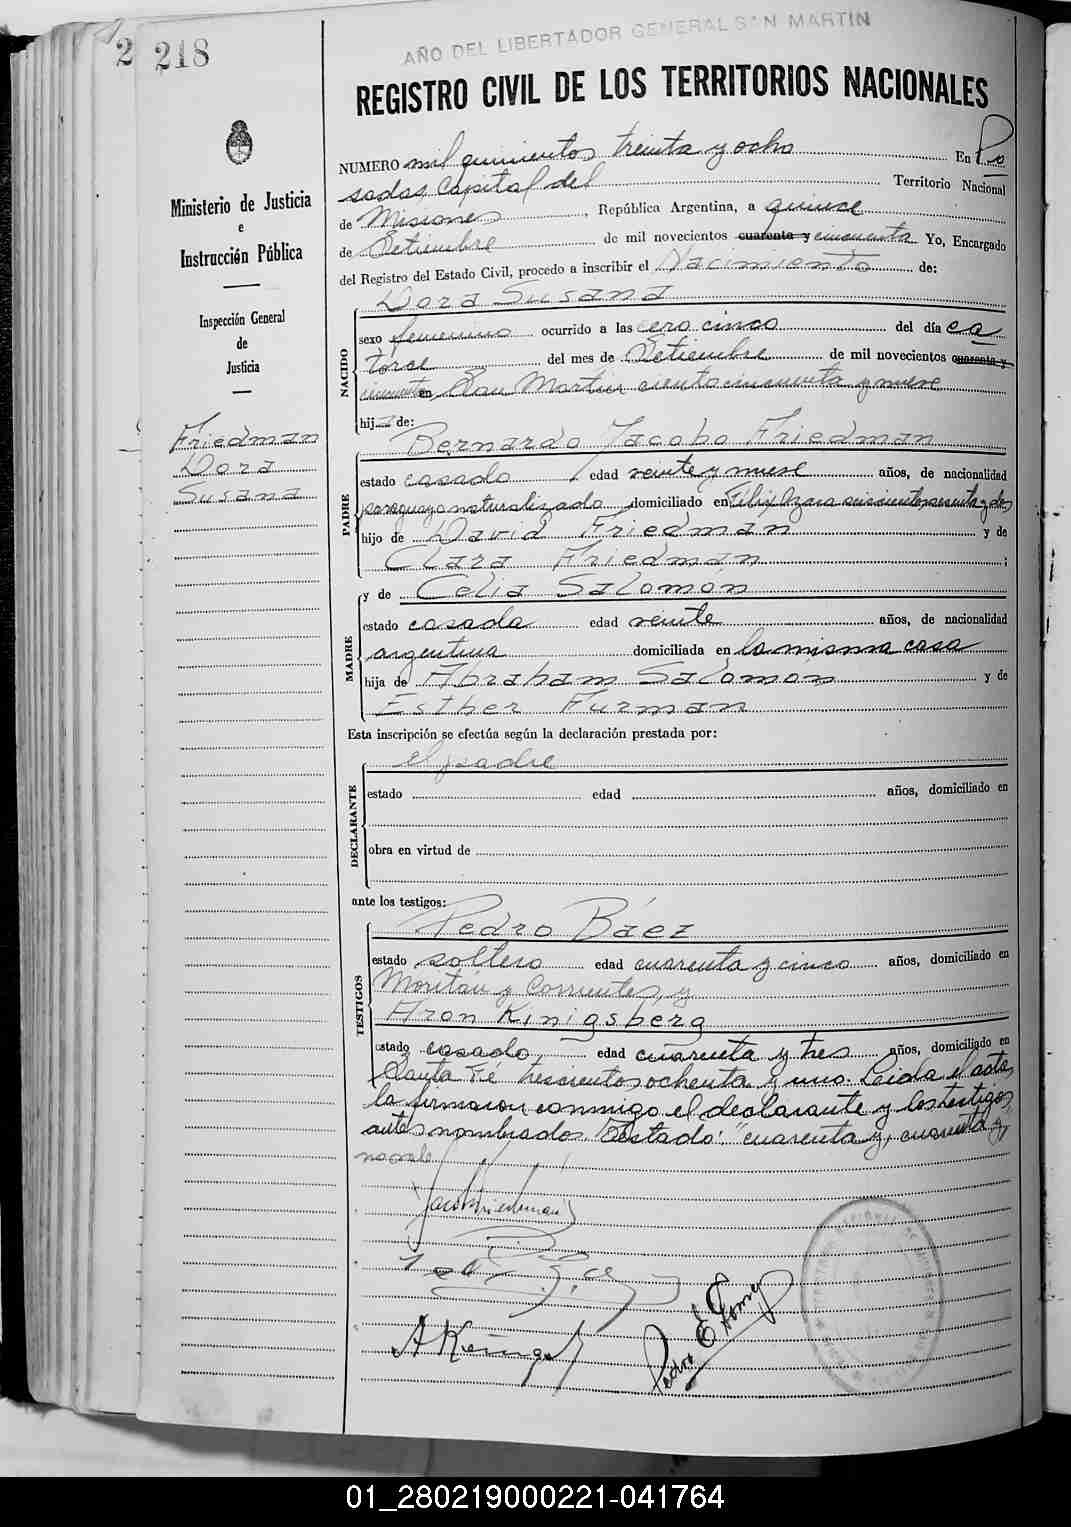 2 218
AÑO DEL LIBERTADOR GENERAL SAN MARTIN
REGISTRO CIVIL DE LOS TERRITORIOS NACIONALES
Ministerio de Justicia
e
Instrucción Pública
Inspección General
de
Justicia
Friedman
Dora
Susana
NUMERO mil quinientos treinta y ocho En Po
sadas, Capital del Territorio Nacional
de Misiones, República Argentina, a quince
de Setiembre de mil novecientos cuarenta y cincuenta Yo, Encargado
del Registro del Estado Civil, procedo a inscribir el Nacimiento de:
Dora Susana
NACIDO
sexo femenino ocurrido a las cero cinco del día ca
torce del mes de Setiembre de mil novecientos cuarenta y
cincuenta en San Martin ciento cincuenta y nueve
hija de:
Bernardo Jacobo Friedman
PADRE
estado casado edad veinte y nueve años, de nacionalidad
paraguayo naturalizado domiciliado en Felix Azara seiscientos sesenta y dos
hijo de David Friedman y de
Clara Friedman ;
MADRE
y de Celia Salomón
estado casada edad veinte años, de nacionalidad
argentina domiciliada en la misma casa
hija de Abraham Salomón y de
Esther Furman
Esta inscripción se efectúa según la declaración prestada por:
el padre
DECLARANTE
estado edad años, domiciliado en
obra en virtud de
ante los testigos:
Pedro Báez
TESTIGOS
estado soltero edad cuarenta y cinco años, domiciliado en
y Corrientes, y
Aron Kinigsberg
estado casado, edad cuarenta y tres años, domiciliado en
Santa Fé trescientos ochenta y uno. Leida el acta,
la firmaron conmigo el declarante y los testigos
antes nombrados. Testado: "cuarenta y, cuarenta y"
no vale
Pedro E. Gomez
01_280219000221-041764